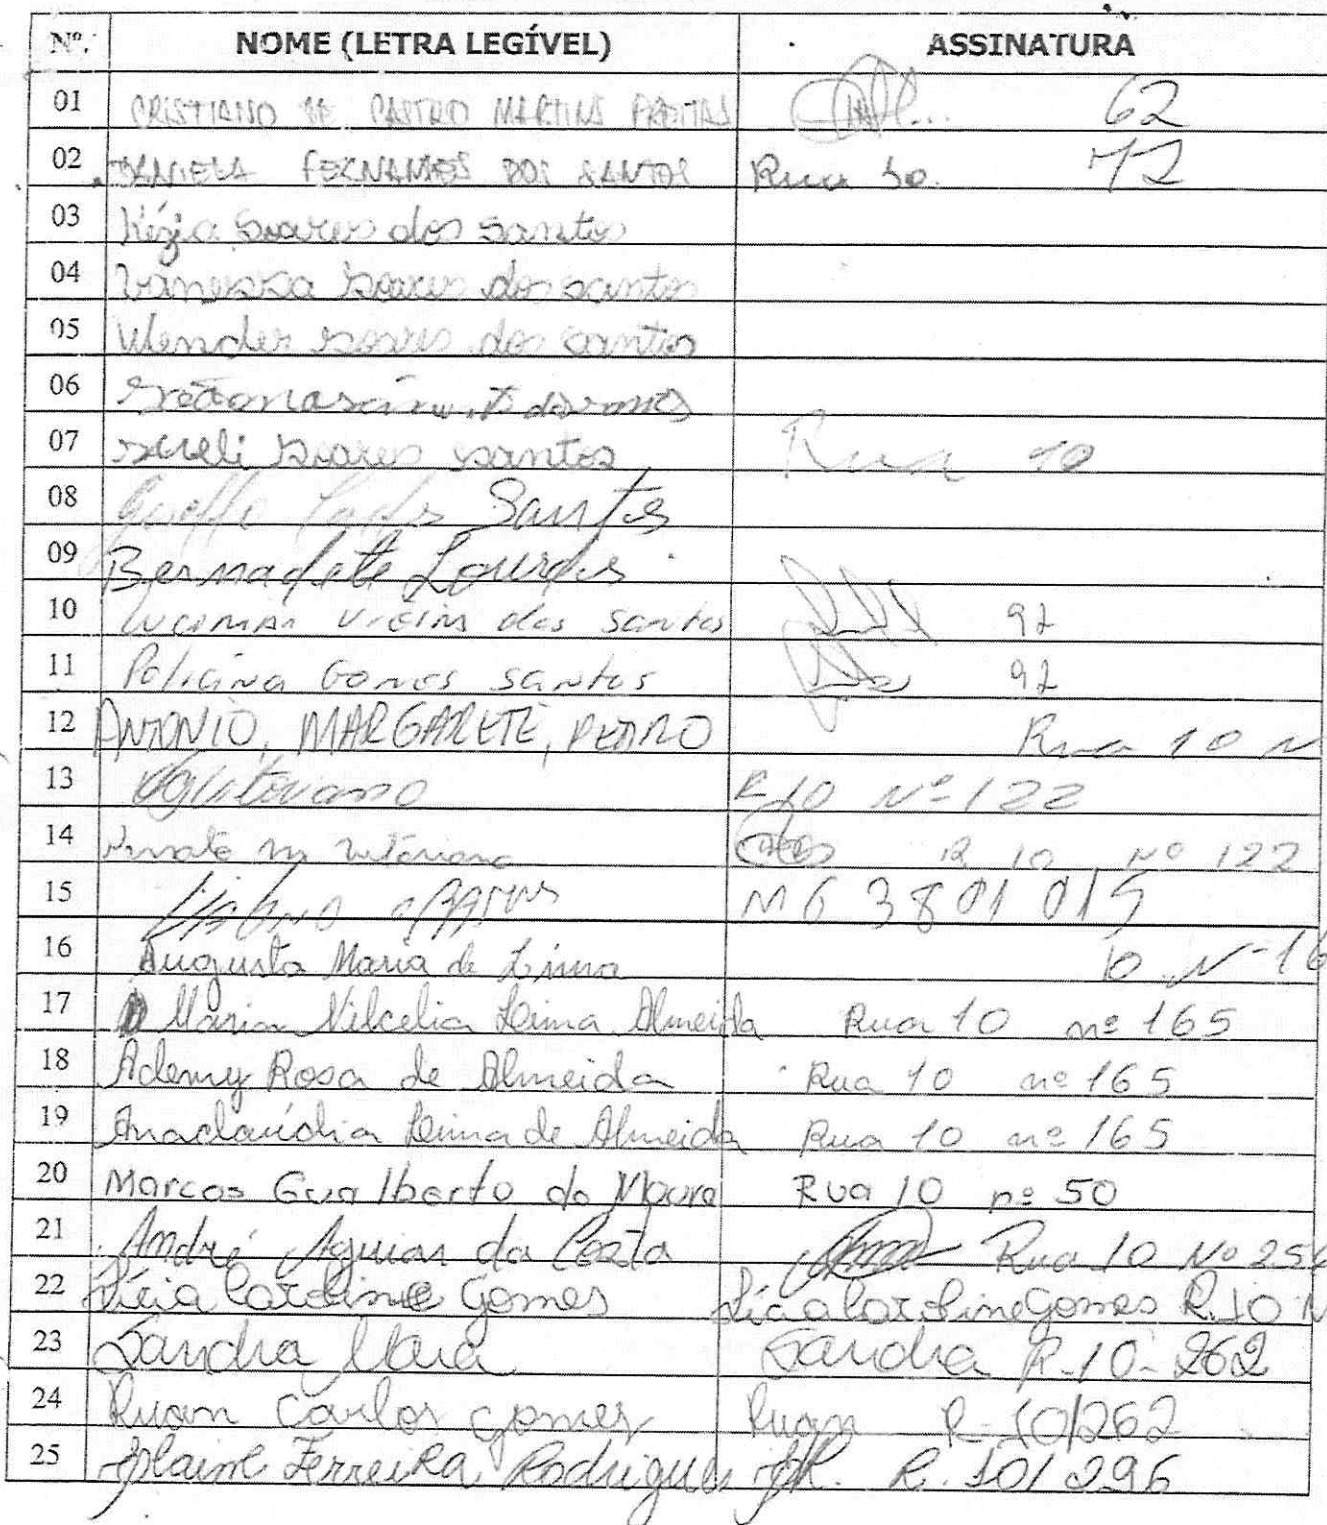 Nº. NOME (LETRA LEGÍVEL) ASSINATURA
01 CRISTIANO DE CASTRO MARTINS FREITAS 62
02 DANIELA FERNANDES DOS SANTOS Rua 10. 72
03 Kézia Soares dos santos
04 Vanessa Soares dos santos
05 Wender soares dos santos
06
07 sueli Soares santos Rua 10
08 Santos
09 Bernadete Lourdes
10 Lucimar Vieira dos Santos 92
11 Policina Gomes santos 92
12 ANTONIO, MARGARETE, PEDRO Rua 10 N
13 R 10 Nº 122
14 Renato M Vitoriano R 10 Nº 122
15 MG 3801015
16 Augusta Maria de Lima 10 Nº 16
17 Maria Nilcelia Leima Almeida Rua 10 nº 165
18 Ademy Rosa de Almeida Rua 10 nº 165
19 Anacláudia Leima de Almeida Rua 10 nº 165
20 Marcos Gualberto de Moura Rua 10 nº 50
21 André Aguiar da Costa Rua 10 Nº 254
22 Caroline Gomes Caroline Gomes R. 10 N
23 Sandra Mara Sandra R-10-262
24 Ruan Carlos gomes Ruan R-10/262
25 Ferreira Rodrigues R. 10/296